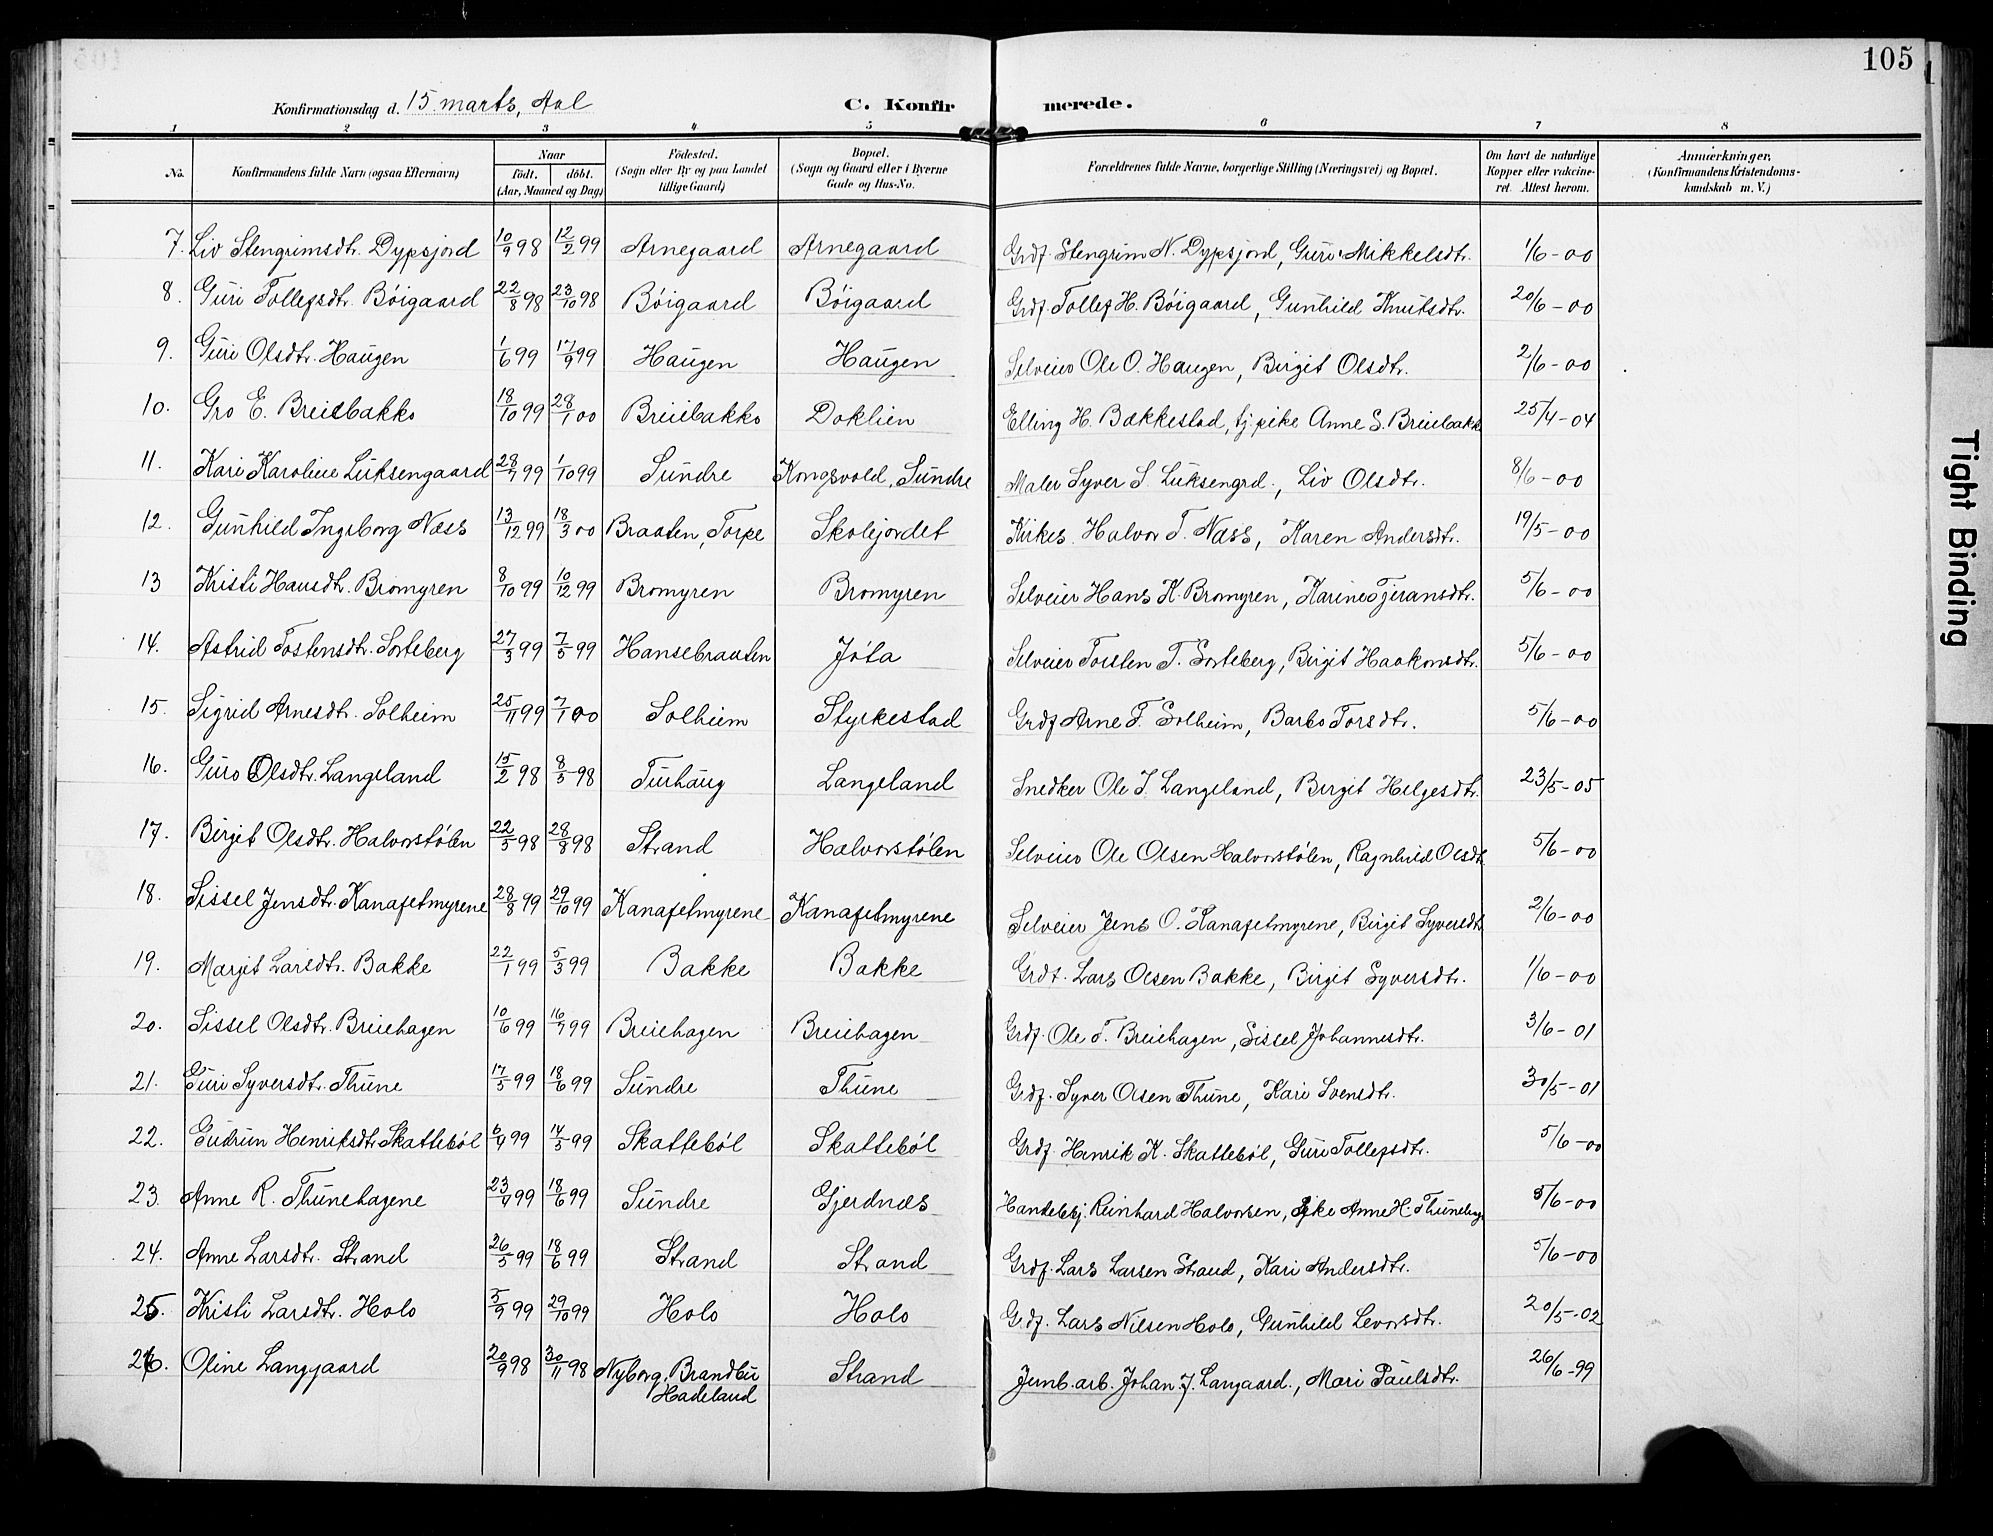 105
Konfirmationsdag d. 15 marts, Aal
C. Konfirmerede.
1 2 3 4 5 6 7 8
No. Konfirmandens fulde Navn (ogsaa Efternavn) Naar født. døbt. (Aar, Maaned og Dag) Fødested. (Sogn eller By og paa Landet tillige Gaard) Bopæl. (Sogn og Gaard eller i Byerne Gade og Hus-No. Forældrenes fulde Navne, borgerlige Stilling (Næringsvei) og Bopæl. Om havt de naturlige Kopper eller vakcineret. Attest herom. Anmærkninger, (Konfirmandens Kristendomskundskab m. V.)
7. Liv Stengrimsdtr. Dypsjord 10/9 98 12/2 99 Arnegaard Arnegaard Grdf. Stengrim N. Dypsjord, Guri Mikkelsdtr. 1/6-00
8. Guri Tollefsdtr. Böigaard 22/8 98 23/10 98 Böigaard Böigaard Grdf. Tollef H. Böigaard, Gunhild Knutsdtr. 20/6-00
9. Guri Olsdtr. Haugen 1/6 99 17/9 99 Haugen Haugen Selveier Ole O. Haugen, Birgit Olsdtr. 2/6-00
10. Gro E. Breiebakko 18/10 99 28/1 00 Breiebakko Doklien Elling H. Bakkestad, tj. pike Anne S. Breiebakk 25/4-04
11. Kari Karoline Luksengaard 28/7 99 1/10 99 Sundre Kongsvold, Sundre Maler Syver S. Luksengrd., Liv Olsdtr. 8/6-00
12. Gunhild Ingeborg Næss 13/12 99 18/3 00 Braaten, Torpe Skolejordet Kirkes. Halvor T. Næss, Karen Andersdtr. 19/5-00
13 Kristi Hansdtr. Bromyren 8/10 99 10/12 99 Bromyren Bromyren Selveier Hans K. Bromyren, Karine Tjeransdtr. 5/6-00
14. Astrid Tostensdtr. Sorteberg 27/3 99 7/5 99 Hansebraaten Jöta Selveier Torsten T. Sorteberg, Birgit Haakonsdtr. 5/6-00
15. Sigrid Arnesdtr. Solheim 25/11 99 7/1 00 Solheim Styrkestad Grdf Arne T. Solheim, Barbo Torsdtr. 5/6-00
16. Guro Olsdtr. Langeland 15/2 98 8/5 98 Turhaug Langeland Snedker Ole I. Langeland, Birgit Helgesdtr. 23/5-05
17. Birgit Olsdtr. Halvorstölen 22/5 98 28/8 98 Strand Halvorstölen Selveier Ole Olsen Halvorstölen, Ragnhild Olsdt 5/6-00
18. Sissel Jensdtr. Kanafetmyrene 28/8 99 29/10 99 Kanafetmyrene Kanafetmyrene Selveier Jens O. Kanafetmyrene, Birgit Syversdt 2/6-00
19. Margit Larsdtr. Bakke 22/1 99 5/3 99 Bakke Bakke Grdf. Lars Olsen Bakke, Birgit Syversdtr. 1/6-00
20. Sissel Olsdtr. Breiehagen 10/6 99 16/7 99 Breiehagen Breiehagen Grdf. Ole T. Breiehagen, Sissel Johannesdtr. 3/6-01
21. Guri Syversdtr. Thune 17/5 99 18/6 99 Sundre Thune Grdf. Syver Olsen Thune, Kari Svensdtr. 30/5-01
22. Gudrun Henriksdtr. Skatteböl 6/4 99 14/5 99 Skatteböl Skatteböl Grdf. Henrik K. Skatteböl, Guri Tollefsdtr. 5/6-00
23. Anne R. Thunehagene 23/4 99 18/6 99 Sundre Gjerdnæs Handelsbj. Reinhard Halvorsen, Pike Anne H. Thunehag 5/6-00
24. Anne Larsdtr. Strand 26/5 99 18/6 99 Strand Strand Grdf. Lars Larsen Strand, Kari Andersdtr. 5/6-00
25. Kristi Larsdtr. Holo 5/9 99 29/10 99 Holo Holo Grdf. Lars Nilsen Holo, Gunhild Levorsdtr. 20/5-02
26. Oline Langgaard 20/9 98 30/11 98 Nyborg, Brandbu Hadeland Strand Jernb.arb. Johan J. Langaard, Mari Paulsdtr. 26/6-99
Tight Binding